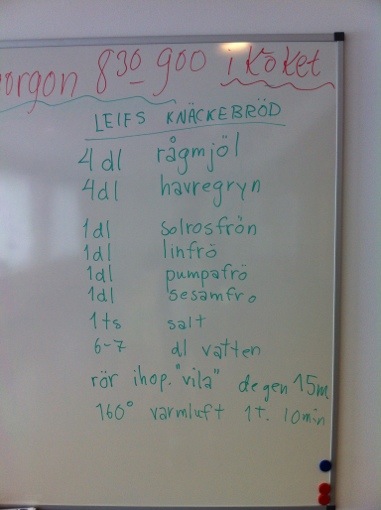 orgon 8³⁰ 900 i köket
LEIFS KNÄCKEBRÖD
4 dl rågmjöl
4dl havregryn
1dl solrosfrön
1dl linfrö
1dl pumpafrö
1dl sesamfrö
1ts salt
6-7 dl vatten
rör ihop. "vila" degen 15m
160° varmluft 1t. 10min